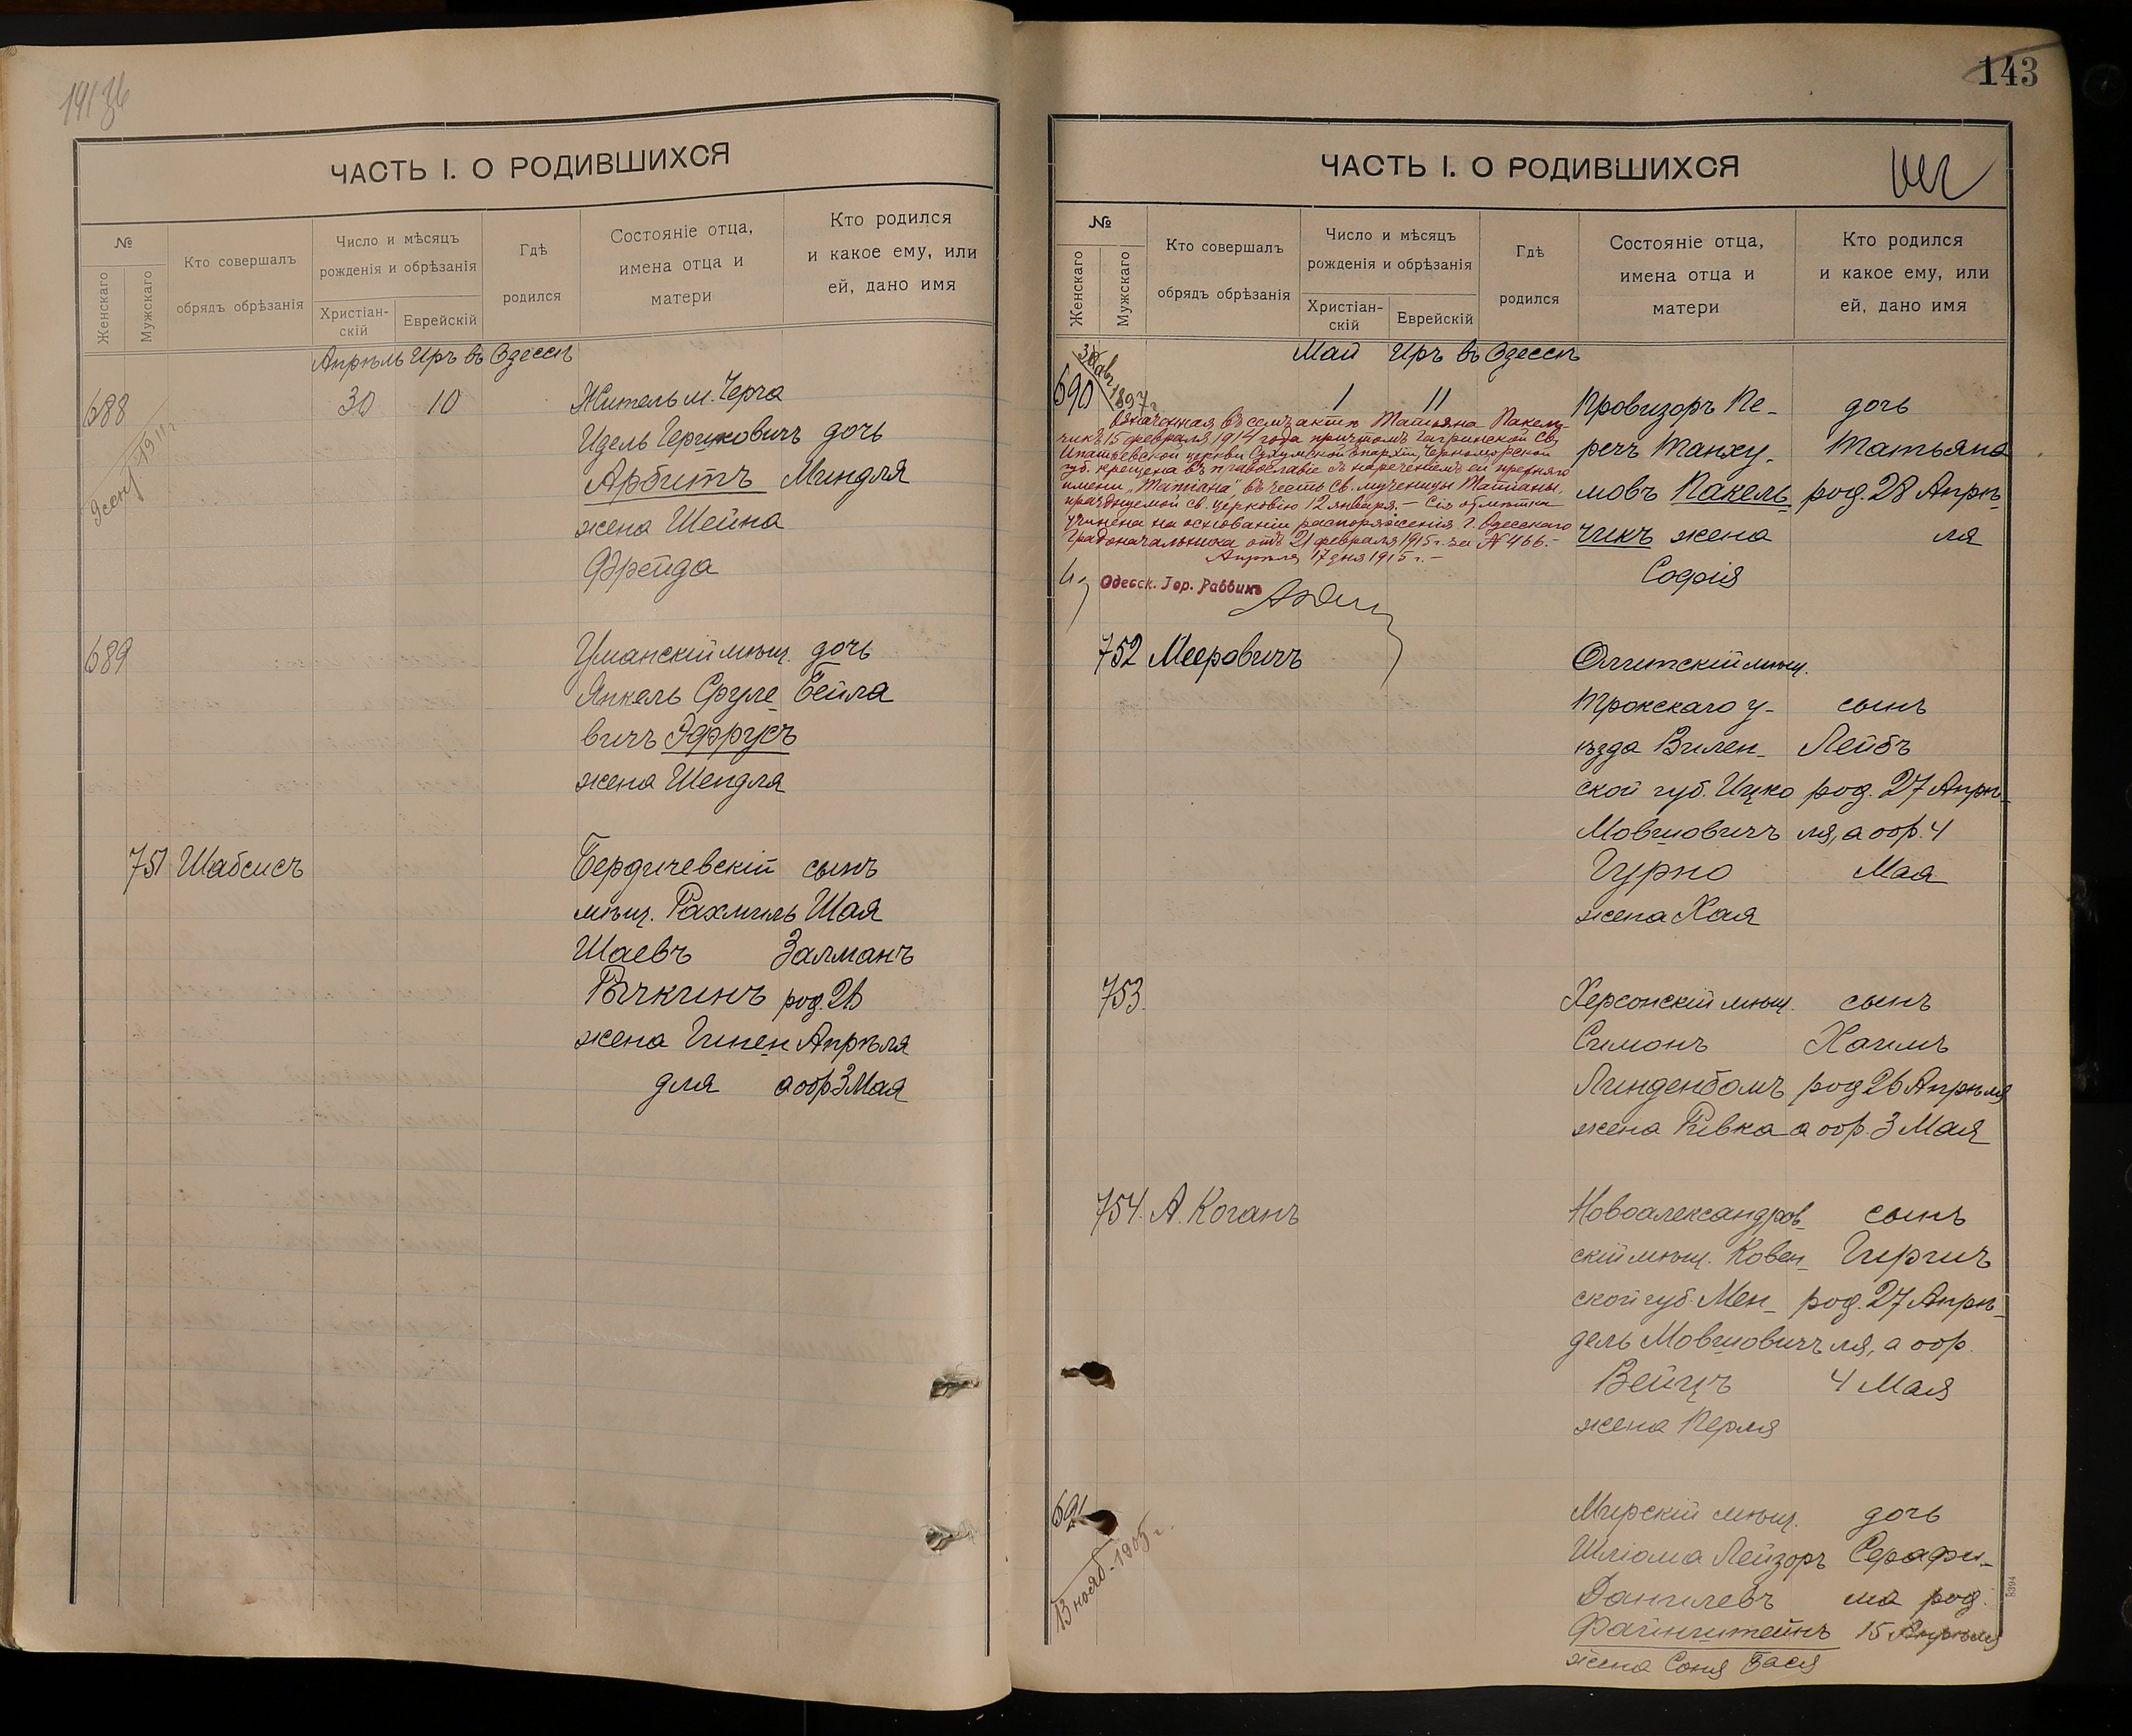 ЧАСТЬ I. О РОДИВШИХСЯ
№
Женскаго
Мужскаго
Кто совершалъ
обрядъ обрѣзанія
Число и мѣсяцъ
рожденія и обрѣзанія
Христіан-
скій
Еврейскій
Гдѣ
родился
Состояніе отца,
имена отца и
матери
Кто родился
и какое ему, или
ей, дано имя
Апрѣль Иръ въ Одессѣ
688 30 10 Житель м. Черча
Идель Гершковичъ дочь
Арбитъ Миндля
жена Шейна
Фрейда
689 Уманскій мѣщ. дочь
Янкель Сруле- Бейла
вичъ Эфрусъ
жена Шендля
751 Шабсисъ Бердичевскій сынъ
мѣщ. Рахмиль Шая
Шаевъ Залманъ
Рычкинъ род. 26
жена Гинен Апрѣля
для а обр 3 Мая
143
ЧАСТЬ I. О РОДИВШИХСЯ
№
Женскаго
Мужскаго
Кто совершалъ
обрядъ обрѣзанія
Число и мѣсяцъ
рожденія и обрѣзанія
Христіан-
скій
Еврейскій
Гдѣ
родился
Состояніе отца,
имена отца и
матери
Кто родился
и какое ему, или
ей, дано имя
Май Иръ въ Одессѣ
690 1 11 Провизоръ Пе- дочь
1897 г.
речъ Танху- Татьяна
мовъ Пакель- род. 28 Апрѣ-
чикъ жена ля
Софія
Означенная въ семъ актѣ Татьяна Пакель-
чикъ 15 февраля 1914 года причтомъ Гагринской Св.
Ипатьевской церкви Сухумской епархіи, Черноморской
губ. крещена въ православіе съ нареченіемъ ей прежняго
имени „Татіана" въ честь Св. мученицы Татіаны,
празднуемой св. церковію 12 января. — Сія отмѣтка
учинена на основаніи распоряженія г. Одесскаго
Градоначальника отъ 21 февраля 1915 г. за № 466. —
Апрѣля 17 дня 1915 г. —
Одесск. Гор. Раввинъ
752 Мееровичъ Олитскій мѣщ.
Трокскаго у- сынъ
ѣзда Вилен- Лейбъ
ской губ. Ицко род. 27 Апрѣ-
Мовшовичъ ля, а обр. 4
Гурно Мая
жена Хая
753. Херсонскій мѣщ. сынъ
Симонъ Хаимъ
Линденбомъ род 26 Апрѣля
жена Ривка а обр. 3 Мая
754. А. Коганъ Новоалександров- сынъ
скій мѣщ. Ковен- Гиршъ
ской губ. Мен- род. 27 Апрѣ-
дель Мовшовичъ ля, а обр.
Вейцъ 4 Мая
жена Перля
691 Мирскій мѣщ. дочь
13 нояб. 1905 г.
Шліома Лейзоръ Серафи-
Данилевъ ма род.
Файнштейнъ 15 Апрѣля
жена Соня Бася
8394